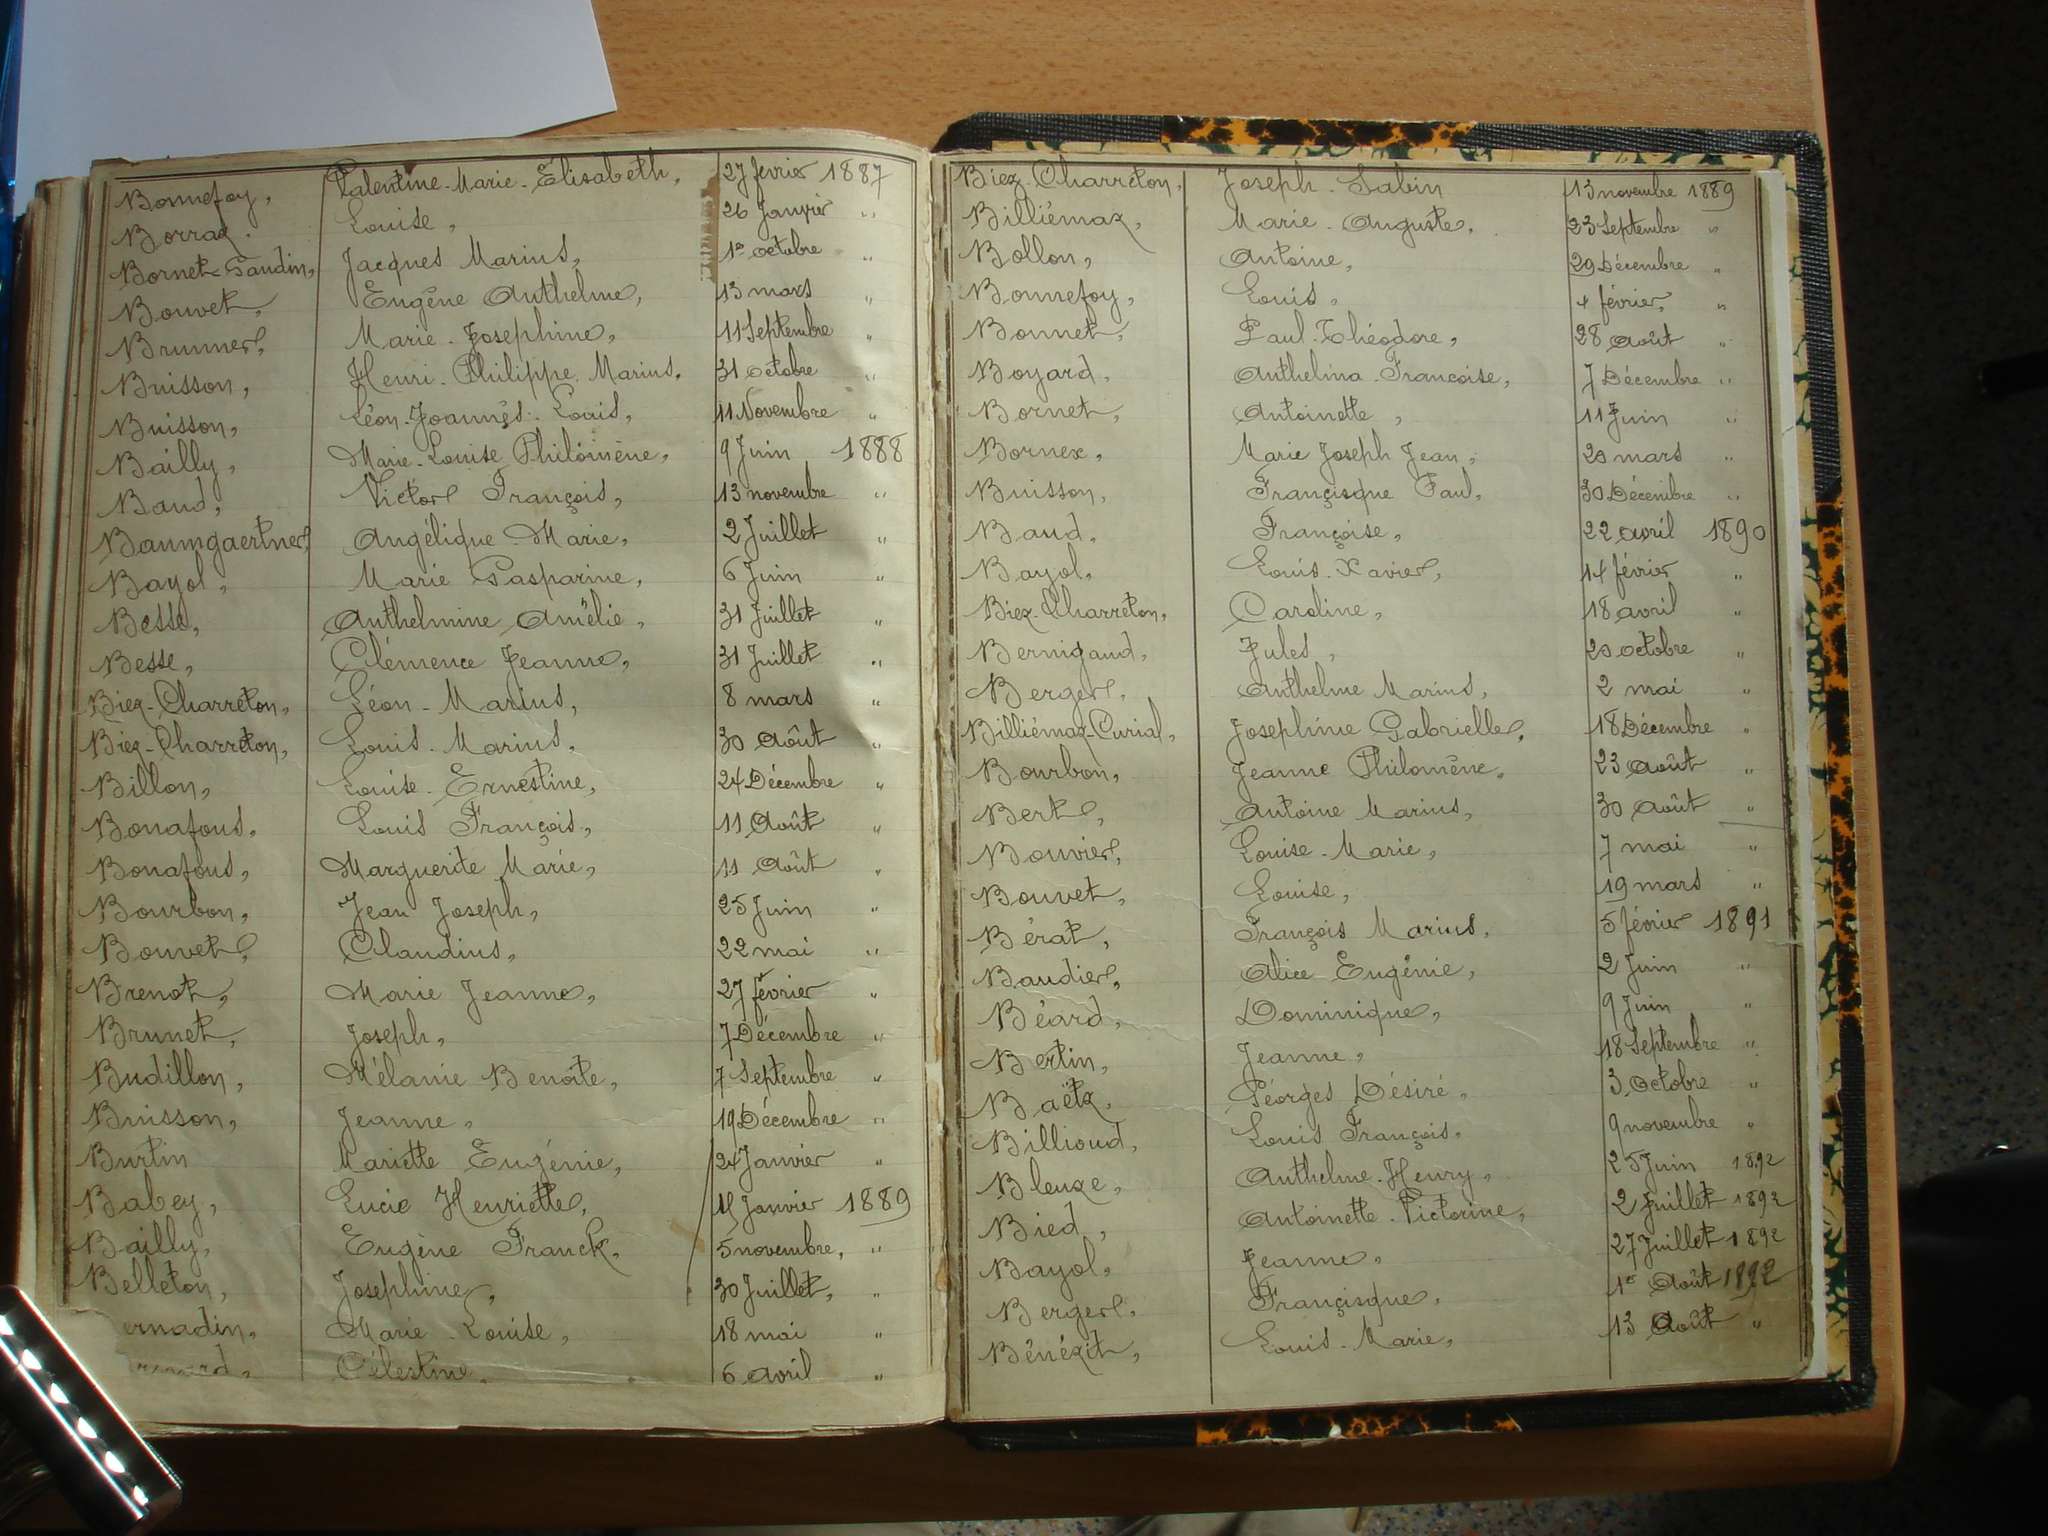 Bonnefoy, Valentine-Marie-Elisabeth, 27 février 1887
Borraz. Louise, 26 Janvier "
Bornet-Gaudin, Jacques Marius, 1er octobre "
Bouvet, Eugène Anthelme, 13 mars "
Brunner, Marie-Josephine, 11 Septembre "
Buisson, Henri-Philippe Marius, 31 octobre "
Buisson, Léon-Joannès-Louis, 11 Novembre "
Bailly, Marie-Louise Philomène, 9 Juin 1888
Baud, Victor François, 13 novembre "
Baumgaertner, Angélique-Marie, 2 Juillet "
Bayol, Marie Gasparine, 6 Juin "
Besse, Anthelmine Amélie, 31 Juillet "
Besse, Clémence Jeanne, 31 Juillet "
Biez-Charreton, Léon-Marius, 8 mars "
Biez-Charreton, Louis-Marius, 30 Août "
Billon, Louise-Ernestine, 24 Décembre "
Bonafous, Louis François, 11 Août "
Bonafous, Marguerite Marie, 11 Août "
Bourbon, Jean Joseph, 25 Juin "
Bouvet, Claudius, 22 mai "
Brenot, Marie Jeanne, 27 février "
Brunet, Joseph, 7 Décembre "
Budillon, Mélanie Benoîte, 7 Septembre "
Buisson, Jeanne, 19 Décembre "
Burtin Mariette Eugénie, 24 Janvier "
Babey, Lucie Henriette, Janvier 1889
Bailly, Eugène Franck, 5 novembre, "
Belleton, Josephine, 30 Juillet, "
ernadin, Marie-Louise, 18 mai "
Célestine, 6 avril "
Biez-Charreton, Joseph-Sabin 13 novembre 1889
Billiémaz, Marie-Auguste, 23 Septembre "
Bollon, Antoine, 29 Décembre "
Bonnefoy, Louis, 4 février, "
Bonnet, Paul-Théodore, 28 Août "
Boyard, Anthelina-Françoise, 7 Décembre "
Bornet, Antoinette, 11 Juin "
Bornex, Marie Joseph Jean, 20 mars "
Buisson, Françisque Paul, 30 Décembre "
Baud, Françoise, 22 avril 1890
Bayol, Louis-Xavier, 14 février "
Biez-Charreton, Caroline, 18 avril "
Bernigaud, Jules, 20 octobre "
Berger, Anthelme Marius, 2 mai "
Billiémaz-Curial, Josephine Gabrielle, 18 Décembre "
Bourbon, Jeanne Philomène, 23 Août "
Bert, Antoine Marius, 30 Août "
Bouvier, Louise-Marie, 7 mai "
Bouvet, Louise, 19 mars "
Bérat, François Marius, 5 février 1891
Baudier, Alice Eugénie, 2 Juin "
Béard, Dominique, 9 Juin "
Bertin, Jeanne, 18 Septembre "
Baëtz, Géorges Désiré, 3 Octobre "
Billioud, Louis François, 9 novembre "
Bleuze, Anthelme-Henry, 25 Juin 1892
Bied, Antoinette-Victorine, 2 Juillet 1892
Bayol, Jeanne, 27 Juillet 1892
Berger, Françisque, 1er Août 1892
Bénézit, Louis-Marie, 13 Août "